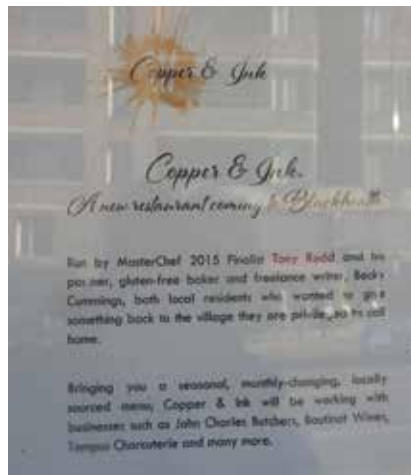 Copper & Ink
Copper & Ink.
A new restaurant coming to Blackheath
Run by MasterChef 2015 Finalist Tony Rodd and his
partner, gluten-free baker and freelance writer, Becky
Cummings, both local residents who wanted to give
something back to the village they are privileged to call
home.
Bringing you a seasonal, monthly-changing, locally
sourced menu, Copper & Ink will be working with
businesses such as John Charles Butchers, Boutinot Wines,
Tempus Charcuterie and many more.